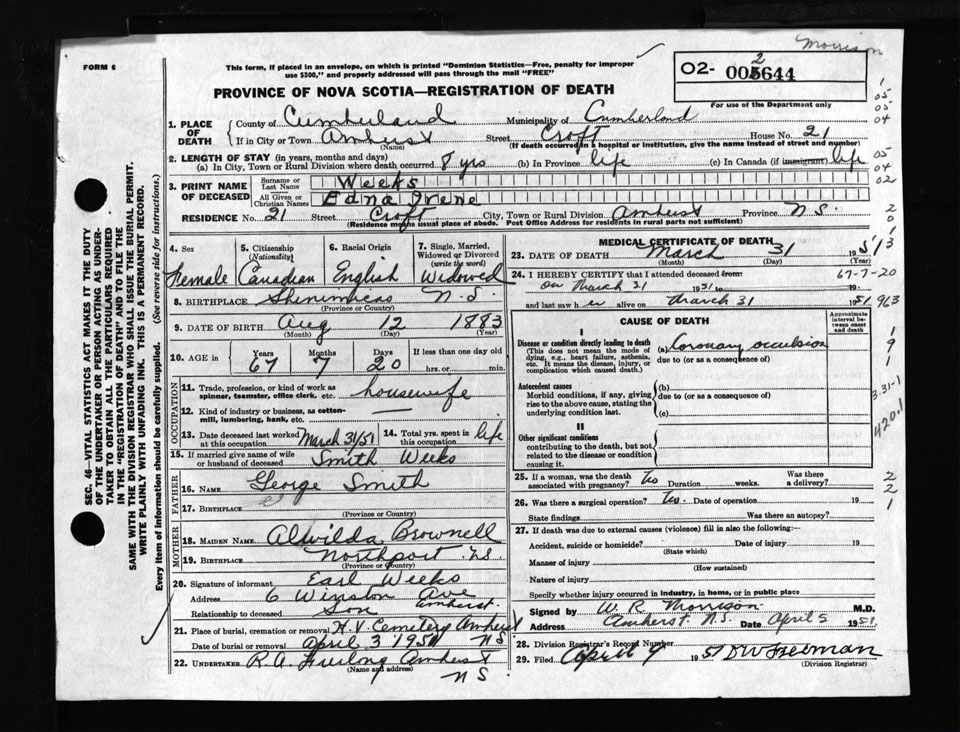 Morrison
FORM 6
This form, if placed in an envelope, on which is printed "Dominion Statistics—Free, penalty for improper
use $300," and properly addressed will pass through the mail "FREE"
02- 002644
For use of the Department only
PROVINCE OF NOVA SCOTIA—REGISTRATION OF DEATH
1. PLACE OF DEATH
County of Cumberland Municipality of Cumberland
If in City or Town Amherst Street Croft House No. 21
(Name) (If death occurred in a hospital or institution, give the name instead of street and number)
2. LENGTH OF STAY (in years, months and days)
(a) In City, Town or Rural Division where death occurred 8 yrs (b) In Province life (c) In Canada (if immigrant) life
3. PRINT NAME OF DECEASED
Surname or Last Name Weeks
All Given or Christian Names Edna Irene
RESIDENCE No. 21 Street Croft City, Town or Rural Division Amherst Province N.S.
(Residence means usual place of abode. Post Office Address for residents in rural parts not sufficient)
4. Sex 5. Citizenship (Nationality) 6. Racial Origin 7. Single, Married, Widowed or Divorced (write the word)
Female Canadian English Widowed
8. BIRTHPLACE Shinimicas N.S.
(Province or Country)
9. DATE OF BIRTH Aug 12 1883
(Month) (Day) (Year)
10. AGE in Years Months Days If less than one day old
67 7 20 hrs. or min.
OCCUPATION
11. Trade, profession, or kind of work as spinner, teamster, office clerk, etc. housewife
12. Kind of industry or business, as cotten-mill, lumbering, bank, etc.
13. Date deceased last worked at this occupation March 31/51 14. Total yrs. spent in this occupation life
15. If married give name of wife or husband of deceased Smith Weeks
FATHER
16. NAME George Smith
17. BIRTHPLACE
(Province or Country)
MOTHER
18. MAIDEN NAME Alwilda Brownell
19. BIRTHPLACE Northport N.S.
(Province or Country)
20. Signature of informant Earl Weeks
Address 6 Winston Ave Amherst.
Relationship to deceased Son
21. Place of burial, cremation or removal H.V. Cemetery Amherst
Date of burial or removal April 3 1951 NS
22. UNDERTAKER R.A. Furlong Amherst
(Name and address) NS
MEDICAL CERTIFICATE OF DEATH
23. DATE OF DEATH March 31 1951
(Month) (Day) (Year)
24. I HEREBY CERTIFY that I attended deceased from
on March 31 1951 to 19
and last saw her alive on March 31 1951
CAUSE OF DEATH
Approximate interval between onset and death
I
Disease or condition directly leading to death (a) Coronary occulsion
(This does not mean the mode of dying, e.g., heart failure, asthenia, etc. It means the disease, injury, or complication which caused death.)
due to (or as a consequence of)
Antecedent causes (b)
Morbid conditions, if any, giving rise to the above cause, stating the underlying condition last.
due to (or as a consequence of)
(c)
II
Other significant conditions
contributing to the death, but not related to the disease or condition causing it.
25. If a woman, was the death associated with pregnancy? No Duration weeks. Was there a delivery?
26. Was there a surgical operation? No. Date of operation 19
State findings Was there an autopsy?
27. If death was due to external causes (violence) fill in also the following:—
Accident, suicide or homicide? Date of injury 19
(State which)
Manner of injury
(How sustained)
Nature of injury
Specify whether injury occurred in industry, in home, or in public place
Signed by W. R. Morrison M.D.
Address Amherst N.S. Date April 5 1951
28. Division Registrar's Record Number
29. Filed April 9 1951
(Division Registrar)
SEC. 46 - VITAL STATISTICS ACT MAKES IT THE DUTY
OF THE UNDERTAKER OR PERSON ACTING AS UNDER-
TAKER TO OBTAIN ALL THE PARTICULARS REQUIRED
IN THE "REGISTRATION OF DEATH" AND TO FILE THE
SAME WITH THE DIVISION REGISTRAR WHO SHALL ISSUE THE BURIAL PERMIT.
WRITE PLAINLY WITH UNFADING INK. THIS IS A PERMANENT RECORD.
Every item of information should be carefully supplied. (See reverse side for instructions.)
1
05
05
04
05
04
02
2
0
1
3
67-7-20
963
1
9
1
3-31-1
420.1
2
2
1